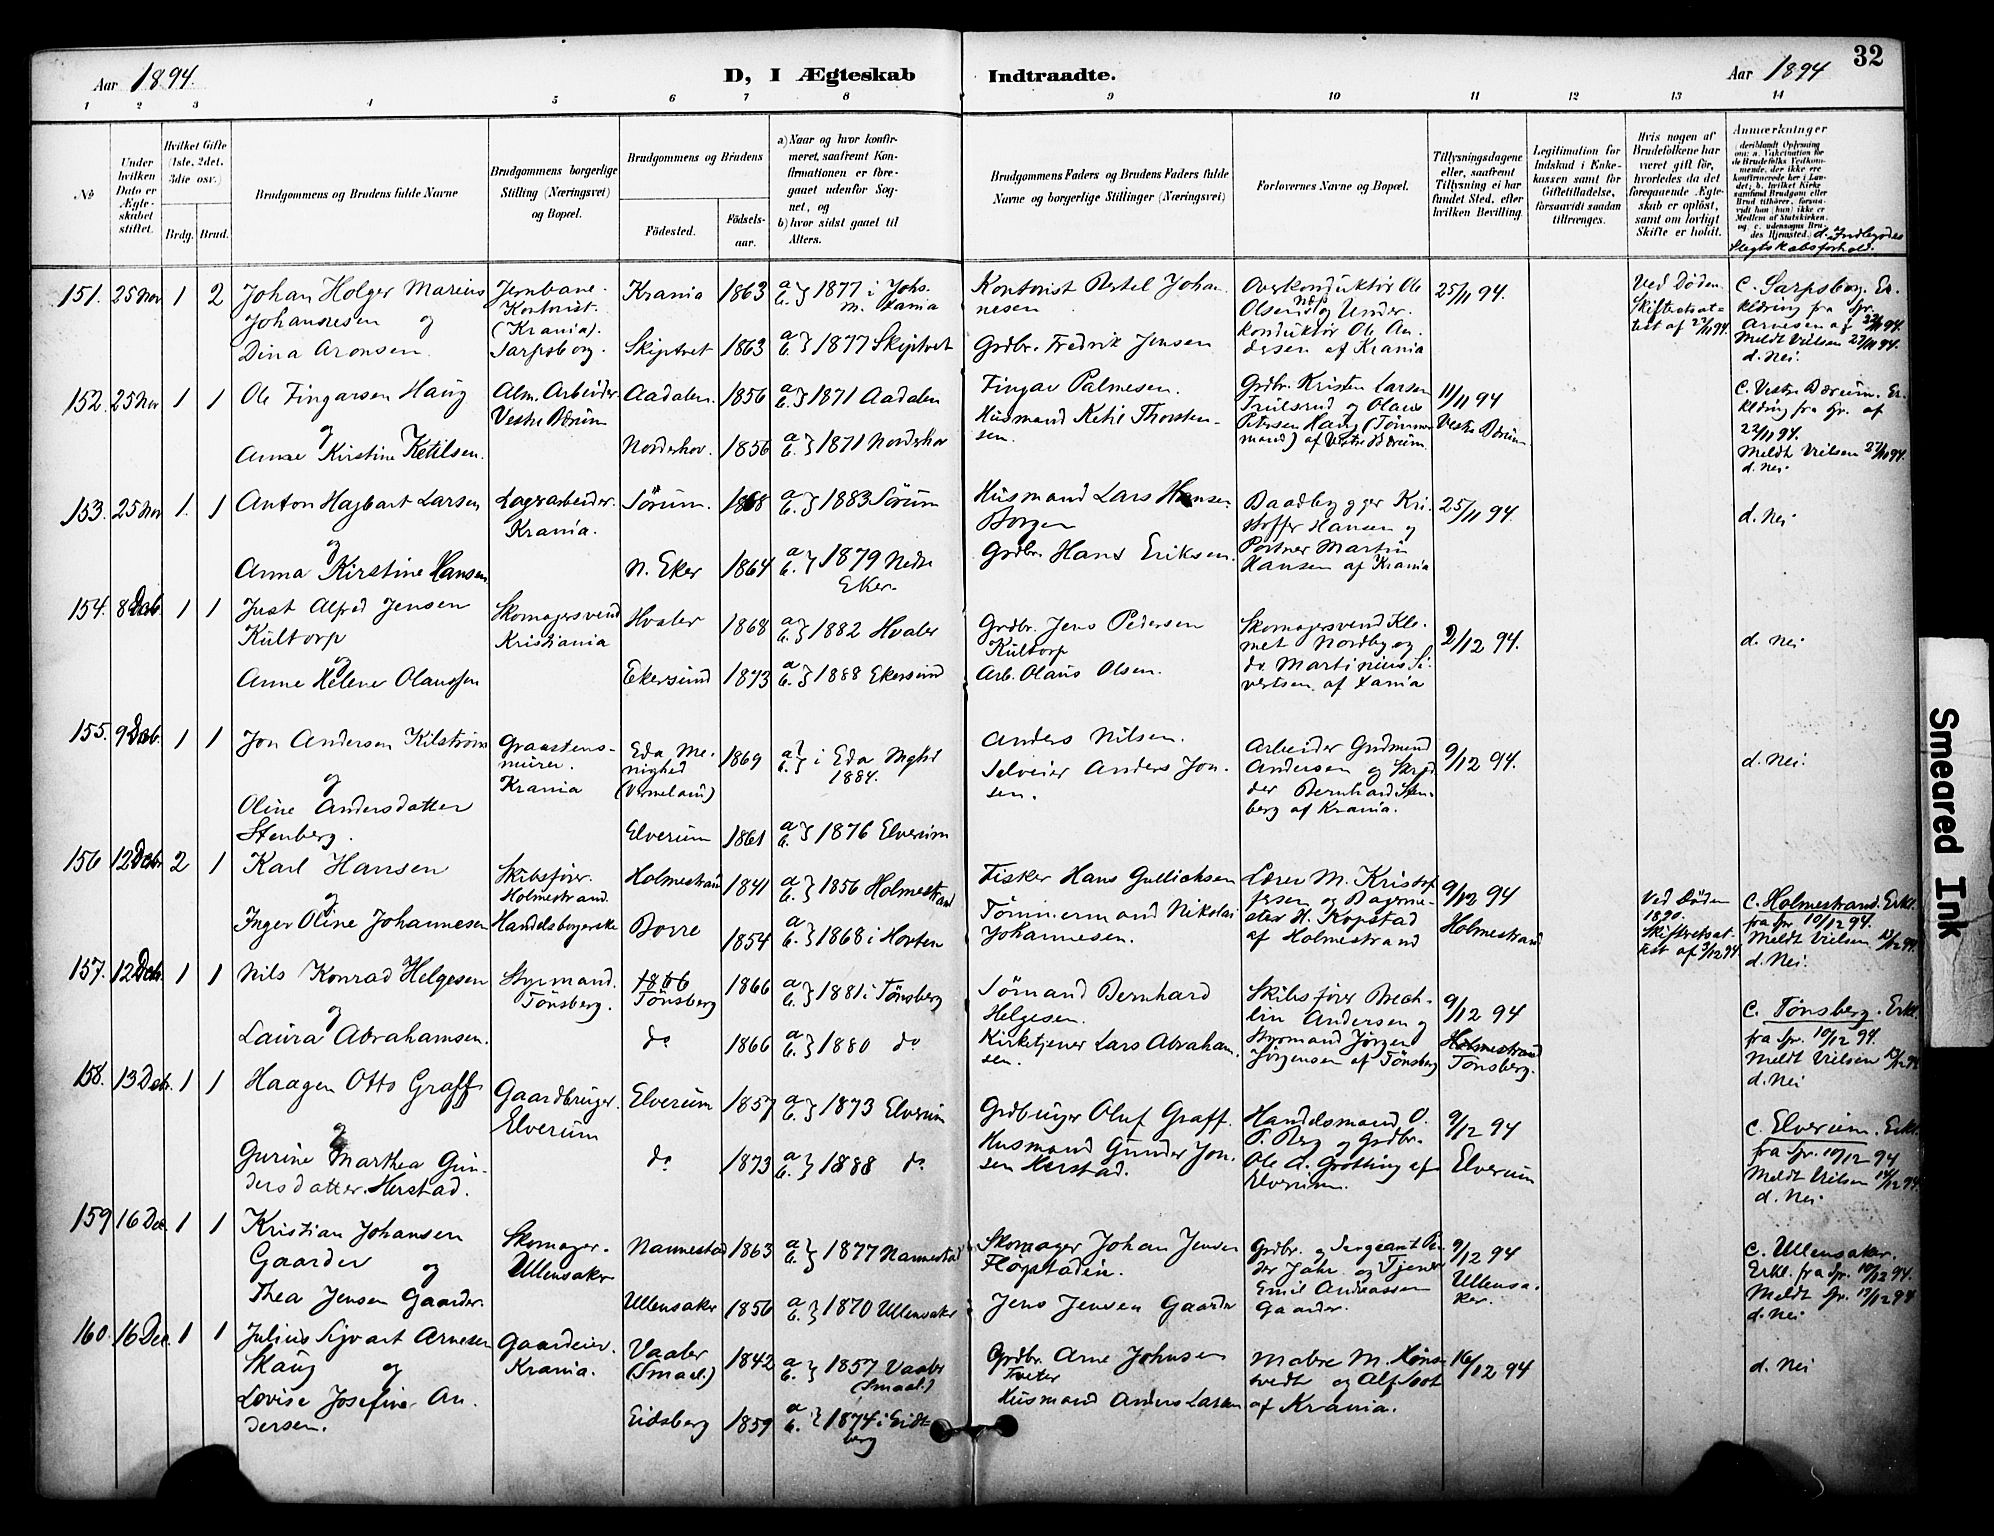 32
Aar 1894.
D, I Ægteskab Indtraadte.
Aar 1894
1 2 3 4 5 6 7 8 9 10 11 12 13 14
No
Under hvilken Dato er Ægteskabet stiftet.
Hvilket Gifte (1ste, 2det, 3die osv.)
Brdg. Brud.
Brudgommens og Brudens fulde Navne
Brudgommens borgerlige Stilling (Næringsvei) og Bopæl.
Brudgommens og Brudens
Födested.
Födsels-aar.
a) Naar og hvor konfirmeret, saafremt Konfirmationen er foregaaet udenfor Sognet, og
b) hvor sidst gaaet til Alters.
Brudgommens Faders og Brudens Faders fulde Navne og borgerlige Stillinger (Næringsvei)
Forlovernes Navne og Bopæl.
Tillysningsdagene eller, saafremt Tillysning ei har fundet Sted, efter hvilken Bevilling.
Legitimation for Indskud i Enkekassen samt for Giftetilladelse, forsaavidt saadan tiltrænges.
Hvis nogen af Brudefolkene har været gift för, hvorledes da det foregaaende Ægteskab er oplöst, samt om lovligt Skifte er holdt.
Anmærkninger
151. 25 Nov 1 2
Johan Holger Marius
Johannesen og
Dina Aronsen.
Jernbane-
Kontorist.
(Krania).
Sarpsborg.
Krania 1863 a b } 1877 i Johs. m. Xania
Skiptvet 1863 a b } 1877 Skiptvet
Kontorist Bertel Johan-
nesen
Grdbr. Fredrik Jensen
Overkonduktör Ole
Olsen og Under-
konduktör Ole An-
dersen af Krania
25/11 94.
Ved Döden
Skifteretsat-
test af
C. Sarpsborg. Er-
klæring fra Spr.
Arnesen af
Meldt Vielsen 27/11 94.
d. Nei.
152. 25 Nov 1 1
Ole Fingarsen Haug
og
Anne Kirstine Ketilsen.
Alm. Arbeider
Vestre Bærum
Aadalen. 1856 a b } 1871 Aadalen
Norderhov. 1856 a b } 1871 Norderhov
Fingar Palmesen.
Husmand Ketil Thorsten-
sen.
Grdbr. Kristen Larsen
Trulsrud og Olaus
Petersen Haug (Tömmer-
mand) af Vestre Bærum.
11/11 94
Vestre Bærum
C. Vestre Bærum. Er-
klæring fra Spr. af
22/11 94.
Meldt Vielsen 27/11 94.
d. Nei.
153. 25 Nov 1. 1
Anton Hagbart Larsen
og
Anna Kirstine Hansen
Lagerarbeider.
Krania.
Sörum. 1868 a b } 1883 Sörum
N. Eker 1864 a b } 1879 Nedre Eker.
Husmand Lars Hansen
Borgen
Grdbr. Hans Eriksen.
Baadbygger Kri-
stoffer Hansen og
Portner Martin
Hansen af Krania
25/11 94.
d. Nei
154. 8 Deb 1 1
Just Alfred Jensen
Kultorp
og
Anne Helene Olaussen
Skomagersvend
Kristiania
Hvaler 1868 a b } 1882 Hvaler
Ekersund 1873 a b } 1888 Ekersund
Grdbr. Jens Pedersen
Kultorp
Arb. Olaus Olsen.
Skomagersvend Kle-
met Nordby og
do. Martinius Si-
vertsen af Xania
2/12 94.
d. Nei
155. 9 Deb. 1 1
Jon Andersen Kilström
og
Oline Andersdatter
Stenberg.
Graastens-
murer.
Krania
Eda Me-
nighed
(Vermeland) 1869 a b } i Eda Mghd 1884.
Elverum 1861 a b } 1876 Elverum
Anders Nilsen.
Selveier Anders Jon-
sen.
Arbeider Gudmund
Andersen og Skræd-
der Bernhard Sten-
berg af Krania.
9/12 94.
d. Nei.
156 12 Deb 2 1
Karl Hansen
og
Inger Oline Johannesen
Skibsförer.
Holmestrand.
Handelsborgerske
Holmestrand 1841 a b } 1856 Holmestrand
Borre 1854 a b } 1868 i Horten
Fisker Hans Gullichsen
Tömmermand Nikolai
Johannesen.
Lærer M. Kristof-
fersen og Bagerme-
ster H. Kopstad
af Holmestrand
9/12 94
Holmestrand
Ved Döden
1890.
Skifteretsat-
test af 3/12 94.
C. Holmestrand. Erkl.
fra Spr. 10/12 94.
Meldt Vielsen 13/12 94
d. Nei.
157. 12 Deb. 1 1
Nils Konrad Helgesen
og
Laura Abrahamsen.
Styrmand.
Tönsberg.
1866
Tönsberg 1866 a b } 1881 i Tönsberg
do 1866 a b } 1880 do
Sömand Bernhard
Helgesen.
Kirketjener Lars Abraham-
sen.
Skibsförer Brech-
lin Andersen og
Styrmand Jörgen
Jörgensen af Tönsberg
9/12 94
Holmestrand
Tönsberg.
C. Tönsberg. Erkl.
fra Spr. 10/12 94.
Meldt Vielsen 13/12 94
d. Nei
158. 13 Deb. 1 1
Haagen Otto Graff
og
Gurine Marthea Gun-
dersdatter Herstad.
Gaardbruger.
Elverum
Elverum 1857 a b } 1873 Elverum
do 1873 a b } 1888 do
Grdbruger Oluf Graff.
Husmand Gunder Jon-
sen Herstad.
Handelsmand O.
P. Berg og Grdbr.
Ole A. Grötting af
Elverum.
9/12 94
Elverum
C. Elverum. Erkl.
fra Spr. 10/12 94
Meldt Vielsen 14/12 94.
d. Nei
159 16 Dec. 1 1
Kristian Johansen
Gaarder og
Thea Jensen Gaarder.
Skomager.
Ullensaker
Nannestad 1863 a b } 1877 Nannestad
Ullensaker 1856 a b } 1870 Ullensaker
Skomager Johan Jensen
Jens Jensen Gaarder
Grdbr. og Sergeant Pe-
der Jahr og Tjener
Emil Andreassen
Gaarder.
9/12 94
Ullensa-
ker.
C. Ullensaker.
Erkl. fra Spr. 10/12 94.
Meldt Spr. 17/12 94
d. Nei
160. 16 Dec. 1 1
Julius Sigvart Arnesen
Skaug og
Lovise Josefine An-
dersen.
Gaardeier.
Krania.
Vaaler
(Smaal.) 1842 a b } 1857 Vaaler (Smaal.)
Eidsberg 1859 a b } 1874 i Eids-
berg
Grdbr. Arne Johnsen
Tveter
Husmand Anders Larsen
Malere M. Höns-
vedt og Alf Soot
af Krania.
16/12 94
d. Nei
Smeared Ink